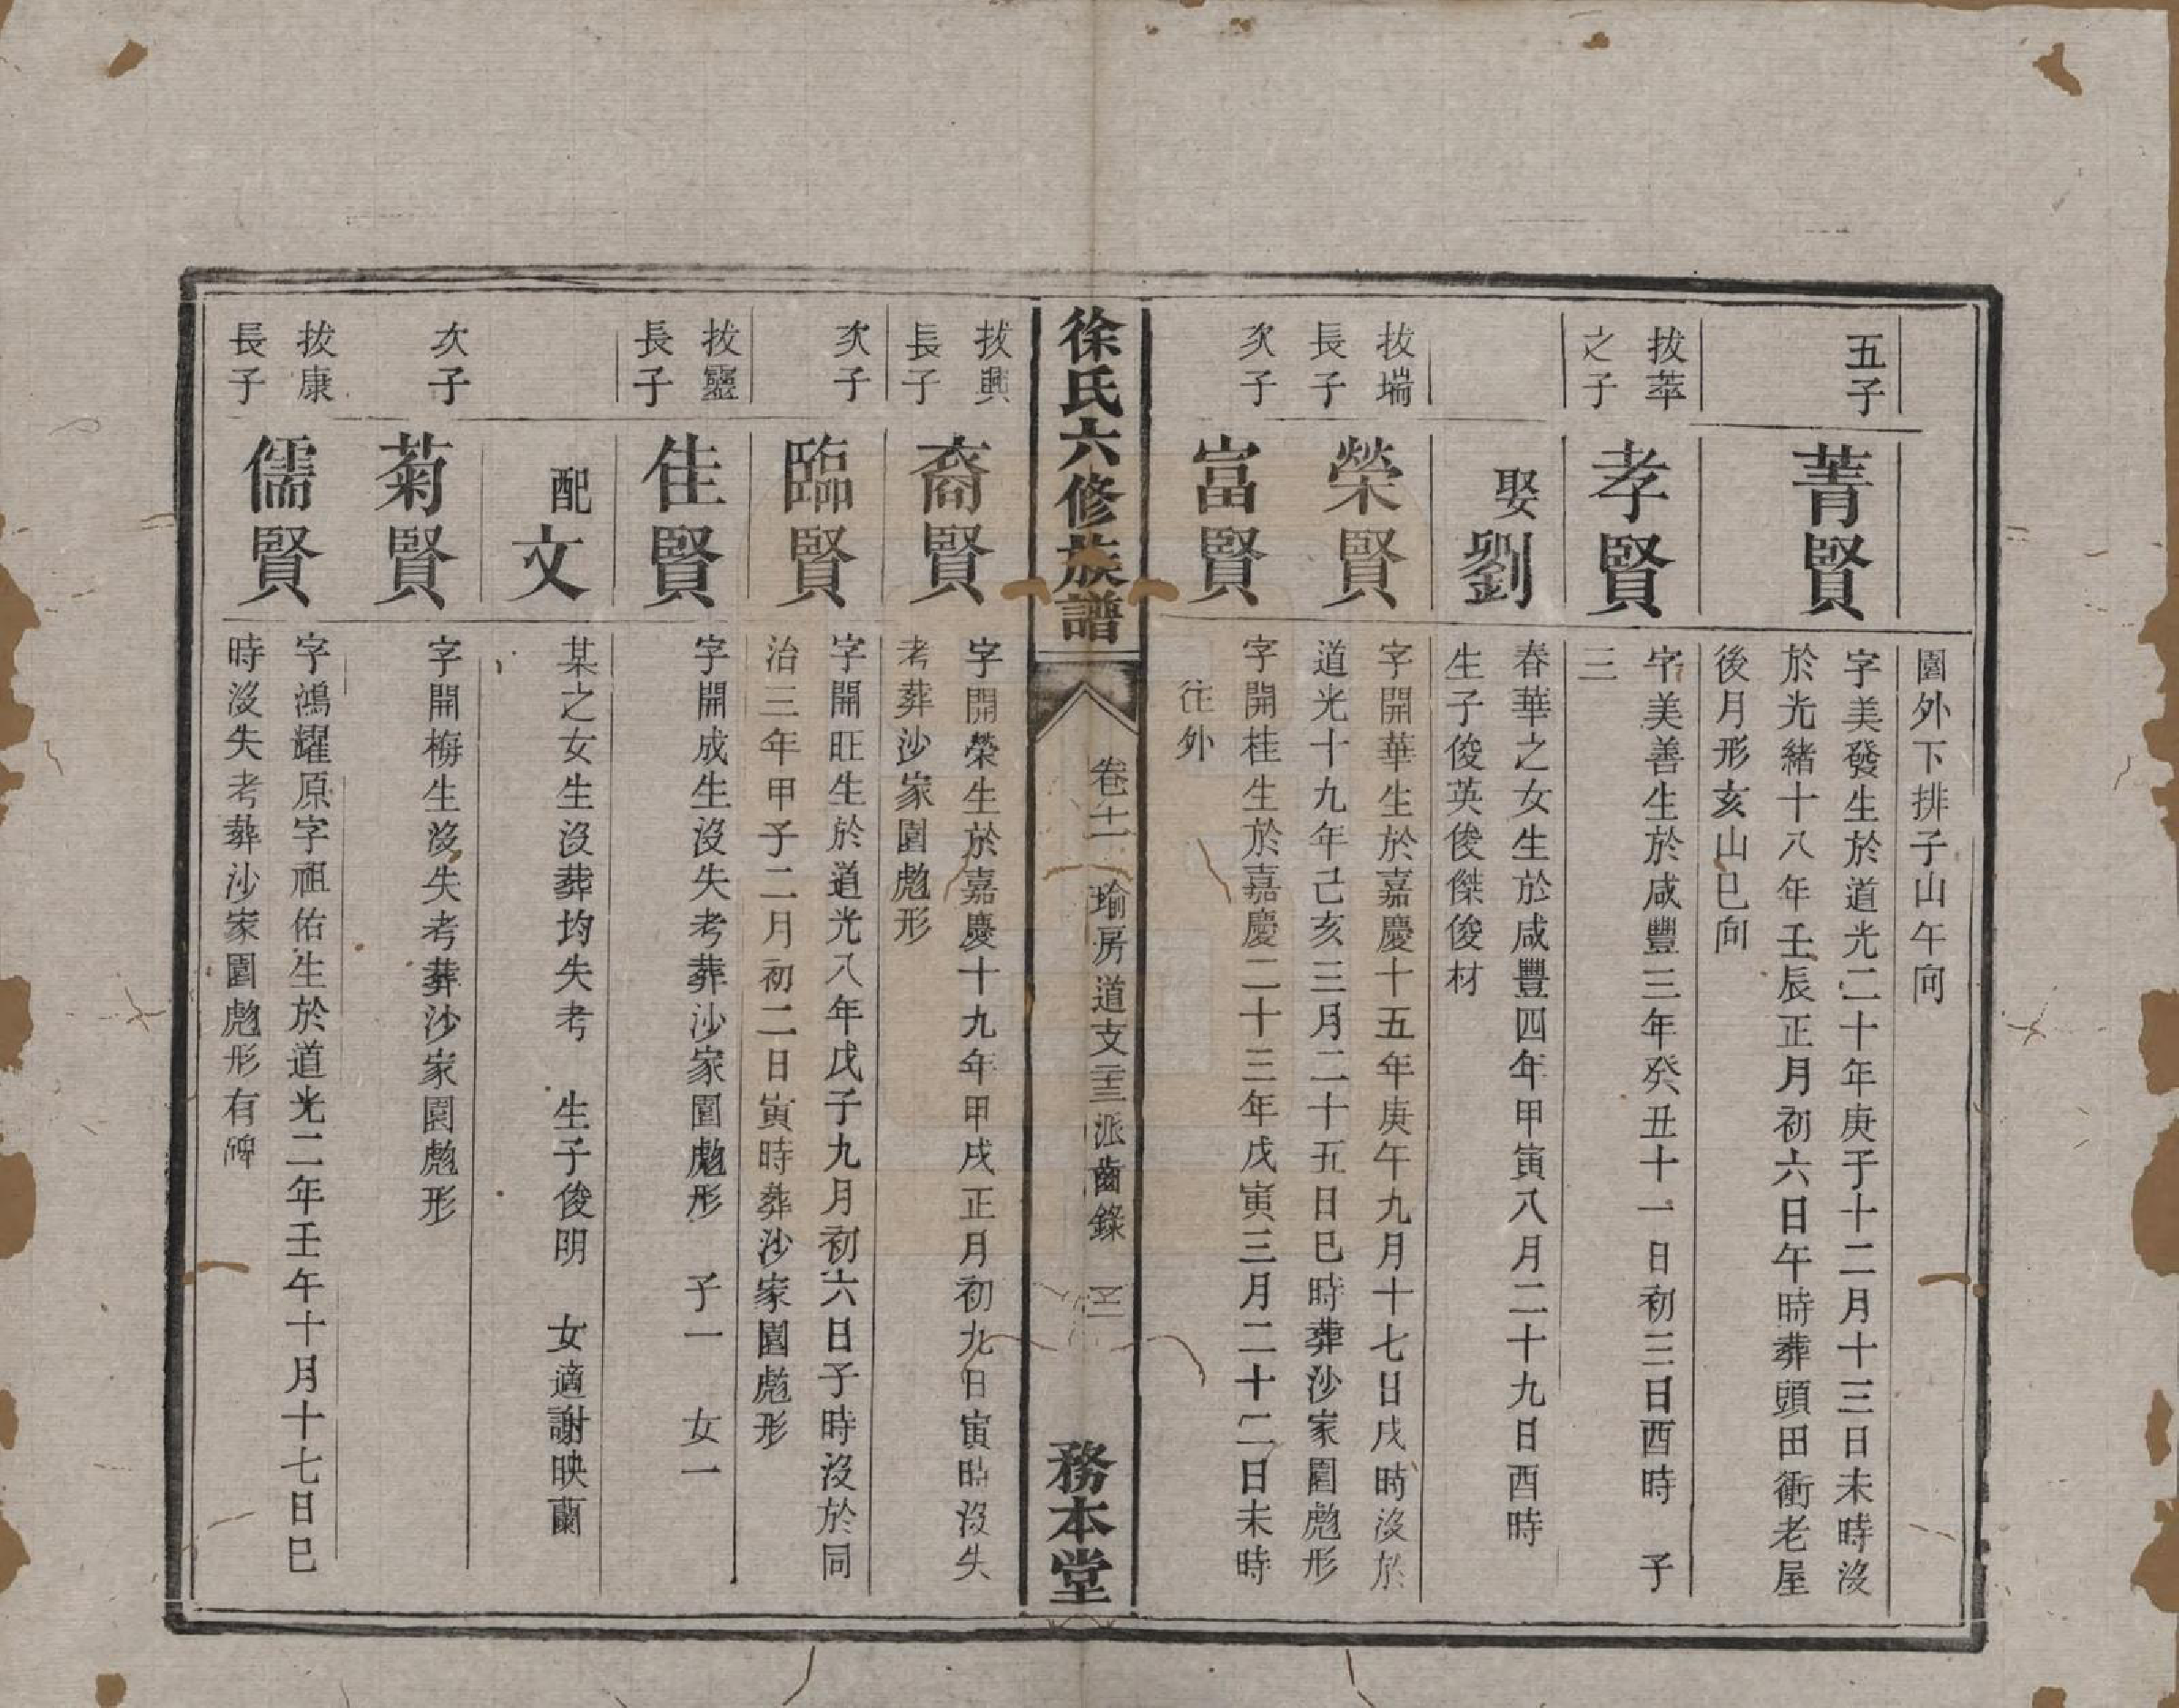 園外下排子山午向
五子
菁賢
字美發生於道光二十年庚子十二月十三日未時沒
於光緒十八年壬辰正月初六日午時葬頭田衝老屋
後月形亥山巳向
拔萃
之子
孝賢
字美善生於咸豐三年癸丑十一日初三日酉時 子
三
娶劉
春華之女生於咸豐四年甲寅八月二十九日酉時
生子俊英俊傑俊材
拔瑞
長子
榮賢
字開華生於嘉慶十五年庚午九月十七日戌時沒於
道光十九年己亥三月二十五日巳時葬沙家園彪形
次子
富賢
字開桂生於嘉慶二十三年戊寅三月二十二日未時
往外
徐氏六修族譜
卷十一 瑜房道支 派齒錄
務本堂
拔興
長子
裔賢
字開榮生於嘉慶十九年甲戌正月初九日寅時沒失
考葬沙家園彪形
次子
臨賢
字開旺生於道光八年戊子九月初六日子時沒於同
治三年甲子二月初二日寅時葬沙家園彪形
拔靈
長子
佳賢
字開成生沒失考葬沙家園彪形 子一 女一
配文
某之女生沒葬均失考 生子俊明 女適謝映蘭
次子
菊賢
字開梅生沒失考葬沙家園彪形
拔康
長子
儒賢
字鴻耀原字祖佑生於道光二年壬午十月十七日巳
時沒失考葬沙家園彪形有碑